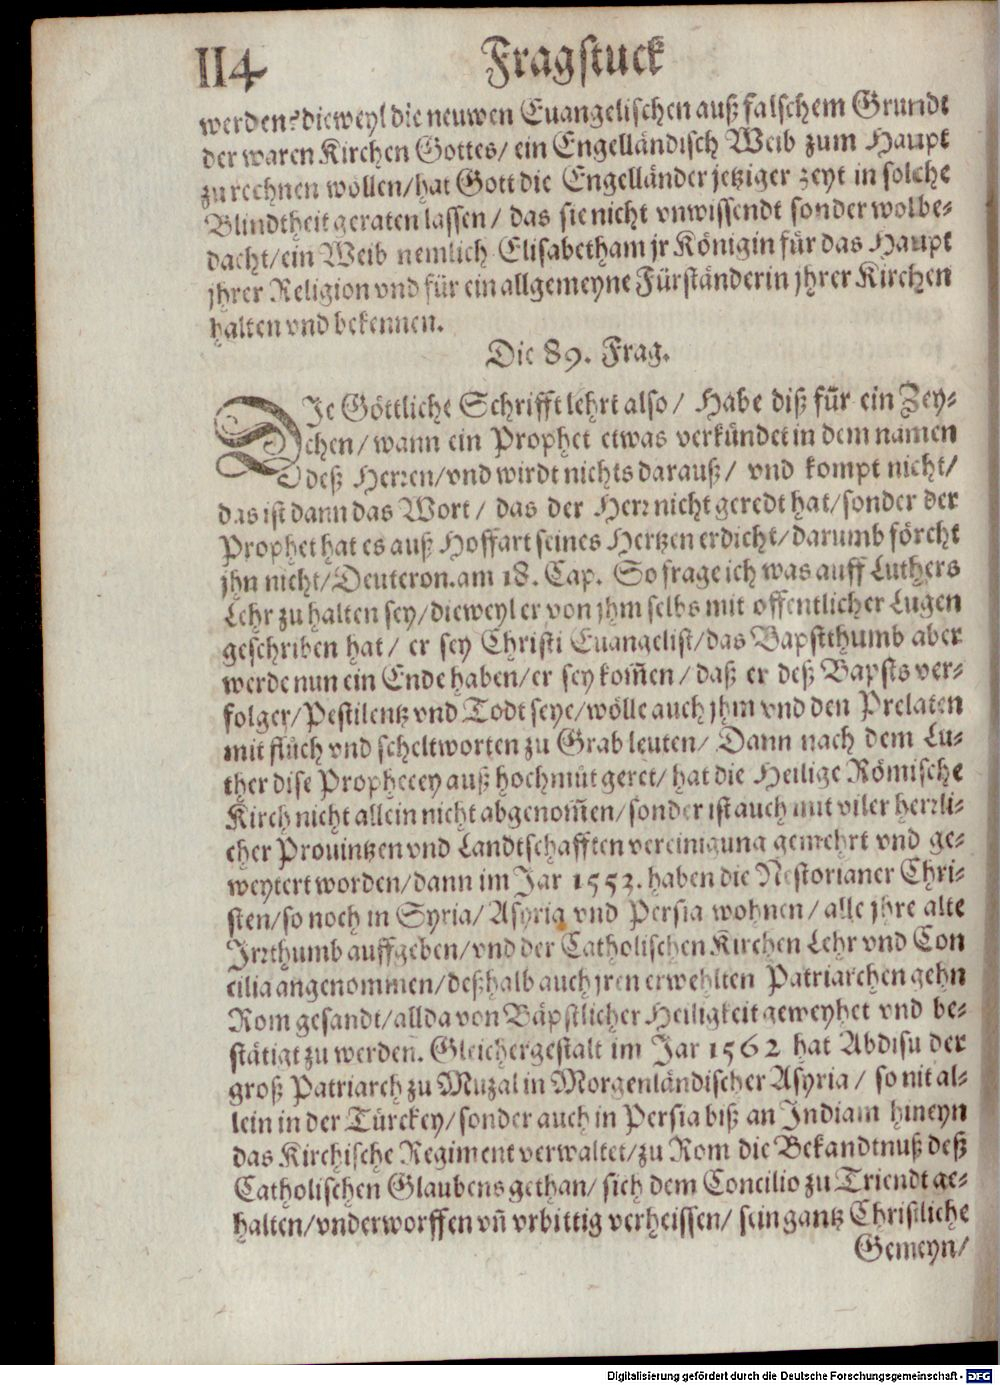 114 Fragstuck
werden? dieweyl die neuwen Euangelischen auß falschem Grundt
der waren Kirchen Gottes/ ein Engelländisch Weib zum Haupt
zu rechnen wöllen/ hat Gott die Engelländer jetziger zeyt in solche
Blindtheit geraten lassen/ das sie nicht vnwissendt sonder wolbe-
dacht/ ein Weib nemlich Elisabetham jr Königin für das Haupt
jhrer Religion vnd für ein allgemeyne Fürständerin jhrer Kirchen
halten vnd bekennen.
Die 89. Frag.
DJe Göttliche Schrifft lehrt also/ Habe diß für ein Zey-
chen/ wann ein Prophet etwas verkündet in dem namen
deß Herren/ vnd wirdt nichts darauß/ vnd kompt nicht/
das ist dann das Wort/ das der Herr nicht geredt hat/ sonder der
Prophet hat es auß Hoffart seines Hertzen erdicht/ darumb förcht
jhn nicht/ Deuteron. am 18. Cap. So frage ich was auff Luthers
Lehr zu halten sey/ dieweyl er von jhm selbs mit offentlicher Lugen
geschriben hat/ er sey Christi Euangelist/ das Bapstthumb aber
werde nun ein Ende haben/ er sey kom̃en/ daß er deß Bapsts ver-
folger/ Pestilentz vnd Todt seye/ wölle auch jhm vnd den Prelaten
mit flůch vnd scheltworten zu Grab leuten/ Dann nach dem Lu-
ther dise Prophecey auß hochmůt geret/ hat die Heilige Römische
Kirch nicht allein nicht abgenom̃en/ sonder ist auch mit viler herrli-
cher Prouintzen vnd Landtschafften vereinigung gemehrt vnd ge-
weytert worden/ dann im Jar 1553. haben die Nestorianer Chri-
sten/ so noch in Syria/ Asyria vnd Persia wohnen/ alle jhre alte
Jrrthumb auffgeben/ vnd der Catholischen Kirchen Lehr vnd Con
cilia angenommen/ deßhalb auch jren erwehlten Patriarchen gehn
Rom gesandt/ allda von Bäpstlicher Heiligkeit geweyhet vnd be-
stätigt zu werden. Gleichergestalt im Jar 1562 hat Abdisu der
groß Patriarch zu Muzal in Morgenländischer Asyria/ so nit al-
lein in der Türckey/ sonder auch in Persia biß an Jndiam hineyn
das Kirchische Regiment verwaltet/ zu Rom die Bekandtnuß deß
Catholischen Glaubens gethan/ sich dem Concilio zu Triendt ge-
halten/ vnderworffen vñ vrbittig verheissen/ sein gantz Christliche
Gemeyn/
Digitalisierung gefördert durch die Deutsche Forschungsgemeinschaft - DFG